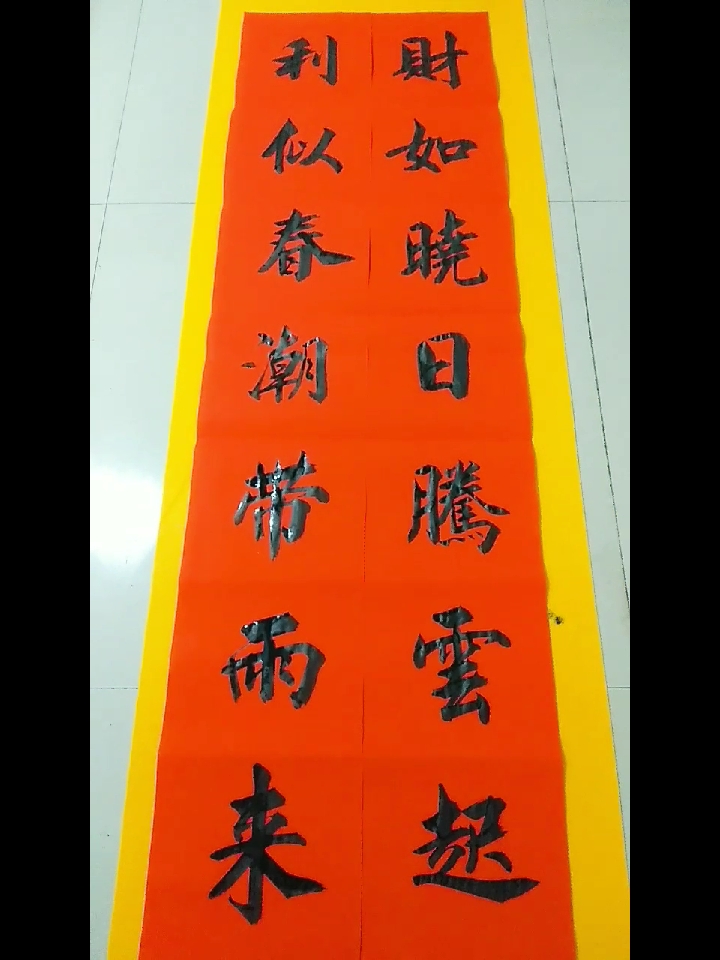 財如曉日騰雲起
利似春潮带雨来